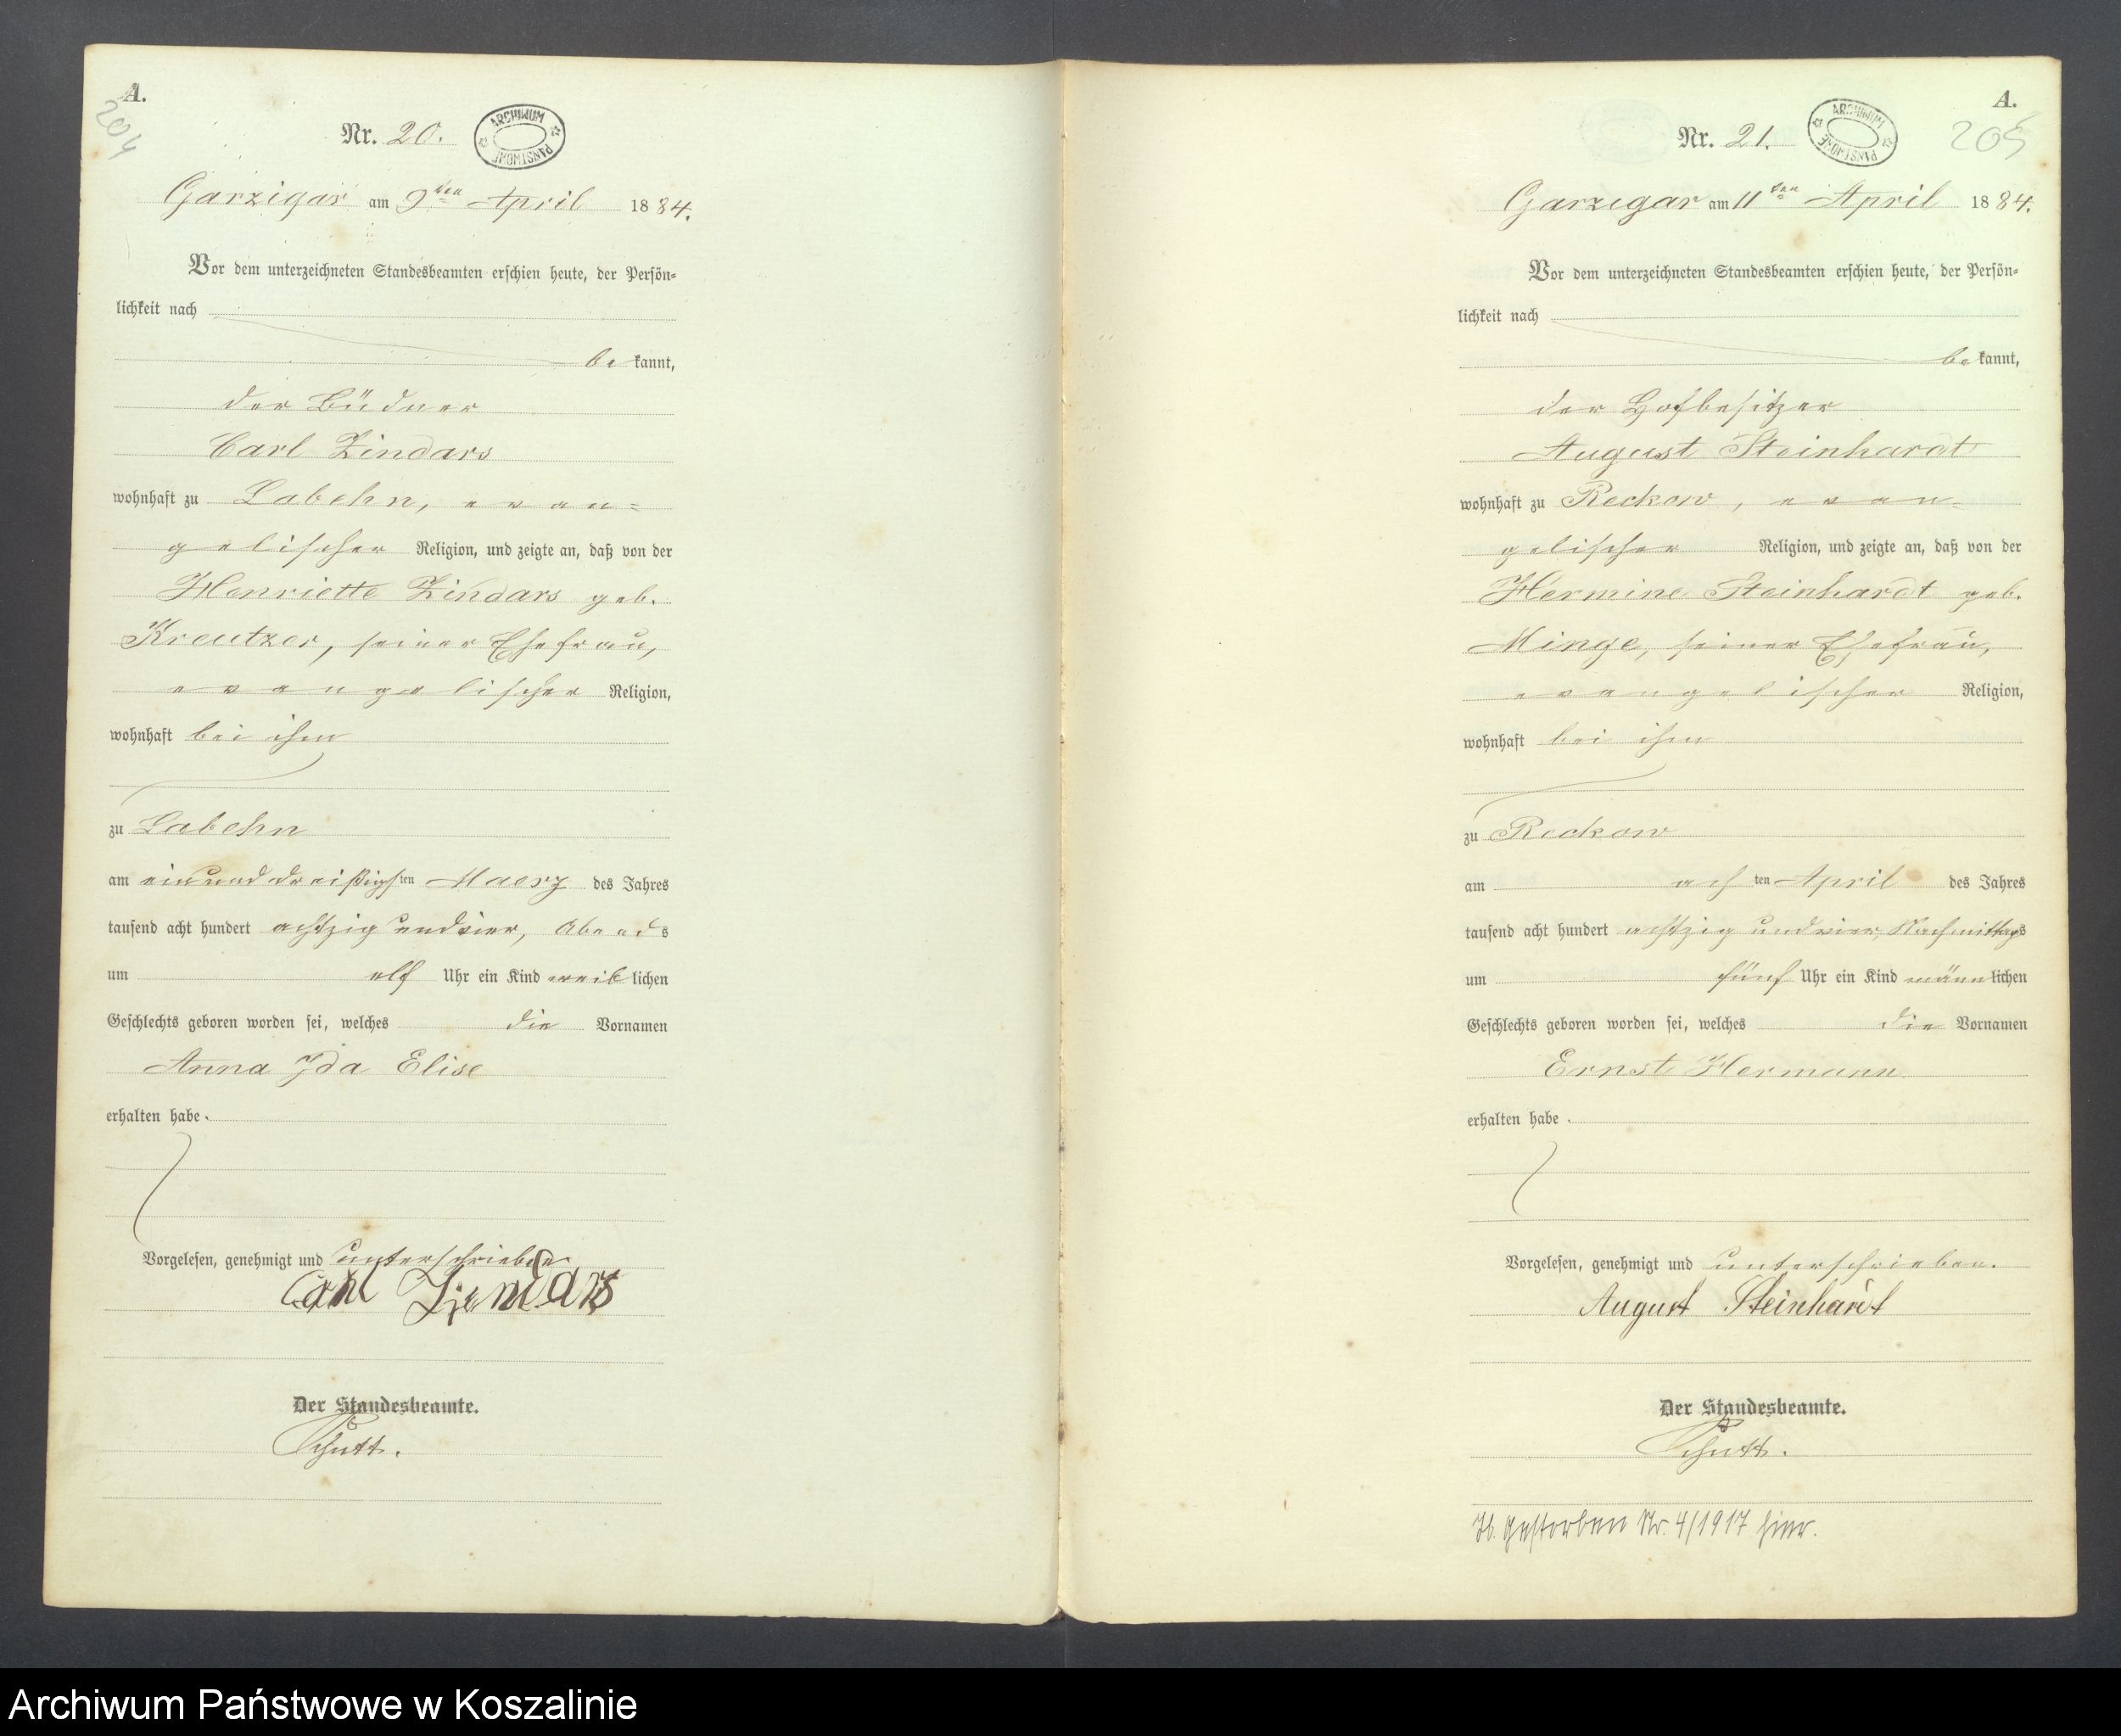 A.
204
Nr. 20.
ARCHIWUM PAŃSTWOWE
Garzigar am 9ten April 1884.
Vor dem unterzeichneten Standesbeamten erschien heute, der Persön=
lichkeit nach
be kannt,
der Büdner
Carl Zindars
wohnhaft zu Labehn, evan=
gelischer Religion, und zeigte an, daß von der
Henriette Zindars geb.
Kreutzer, seiner Ehefrau,
evangelischer Religion,
wohnhaft bei ihm
zu Labehn
am einunddreißigsten Maerz des Jahres
tausend acht hundert achtzig und vier, Abends
um elf Uhr ein Kind weiblichen
Geschlechts geboren worden sei, welches die Vornamen
Anna Ida Elise
erhalten habe.
Vorgelesen, genehmigt und unterschrieben
Carl Zindars
Der Standesbeamte.
Schutt.
A.
205
Nr. 21.
ARCHIWUM PAŃSTWOWE
Garzigar am 11ten April 1884.
Vor dem unterzeichneten Standesbeamten erschien heute, der Persön=
lichkeit nach
be kannt,
der Hofbesitzer
August Steinhardt
wohnhaft zu Reckow, evan=
gelischer Religion, und zeigte an, daß von der
Hermine Steinhardt geb.
Minge, seiner Ehefrau,
evangelischer Religion,
wohnhaft bei ihm
zu Reckow
am achten April des Jahres
tausend acht hundert achtzig und vier, Nachmittags
um fünf Uhr ein Kind männlichen
Geschlechts geboren worden sei, welches die Vornamen
Ernst Hermann
erhalten habe.
Vorgelesen, genehmigt und unterschrieben.
August Steinhardt
Der Standesbeamte.
Schutt.
Gestorben Nr. 4/1917 hier.
Archiwum Państwowe w Koszalinie